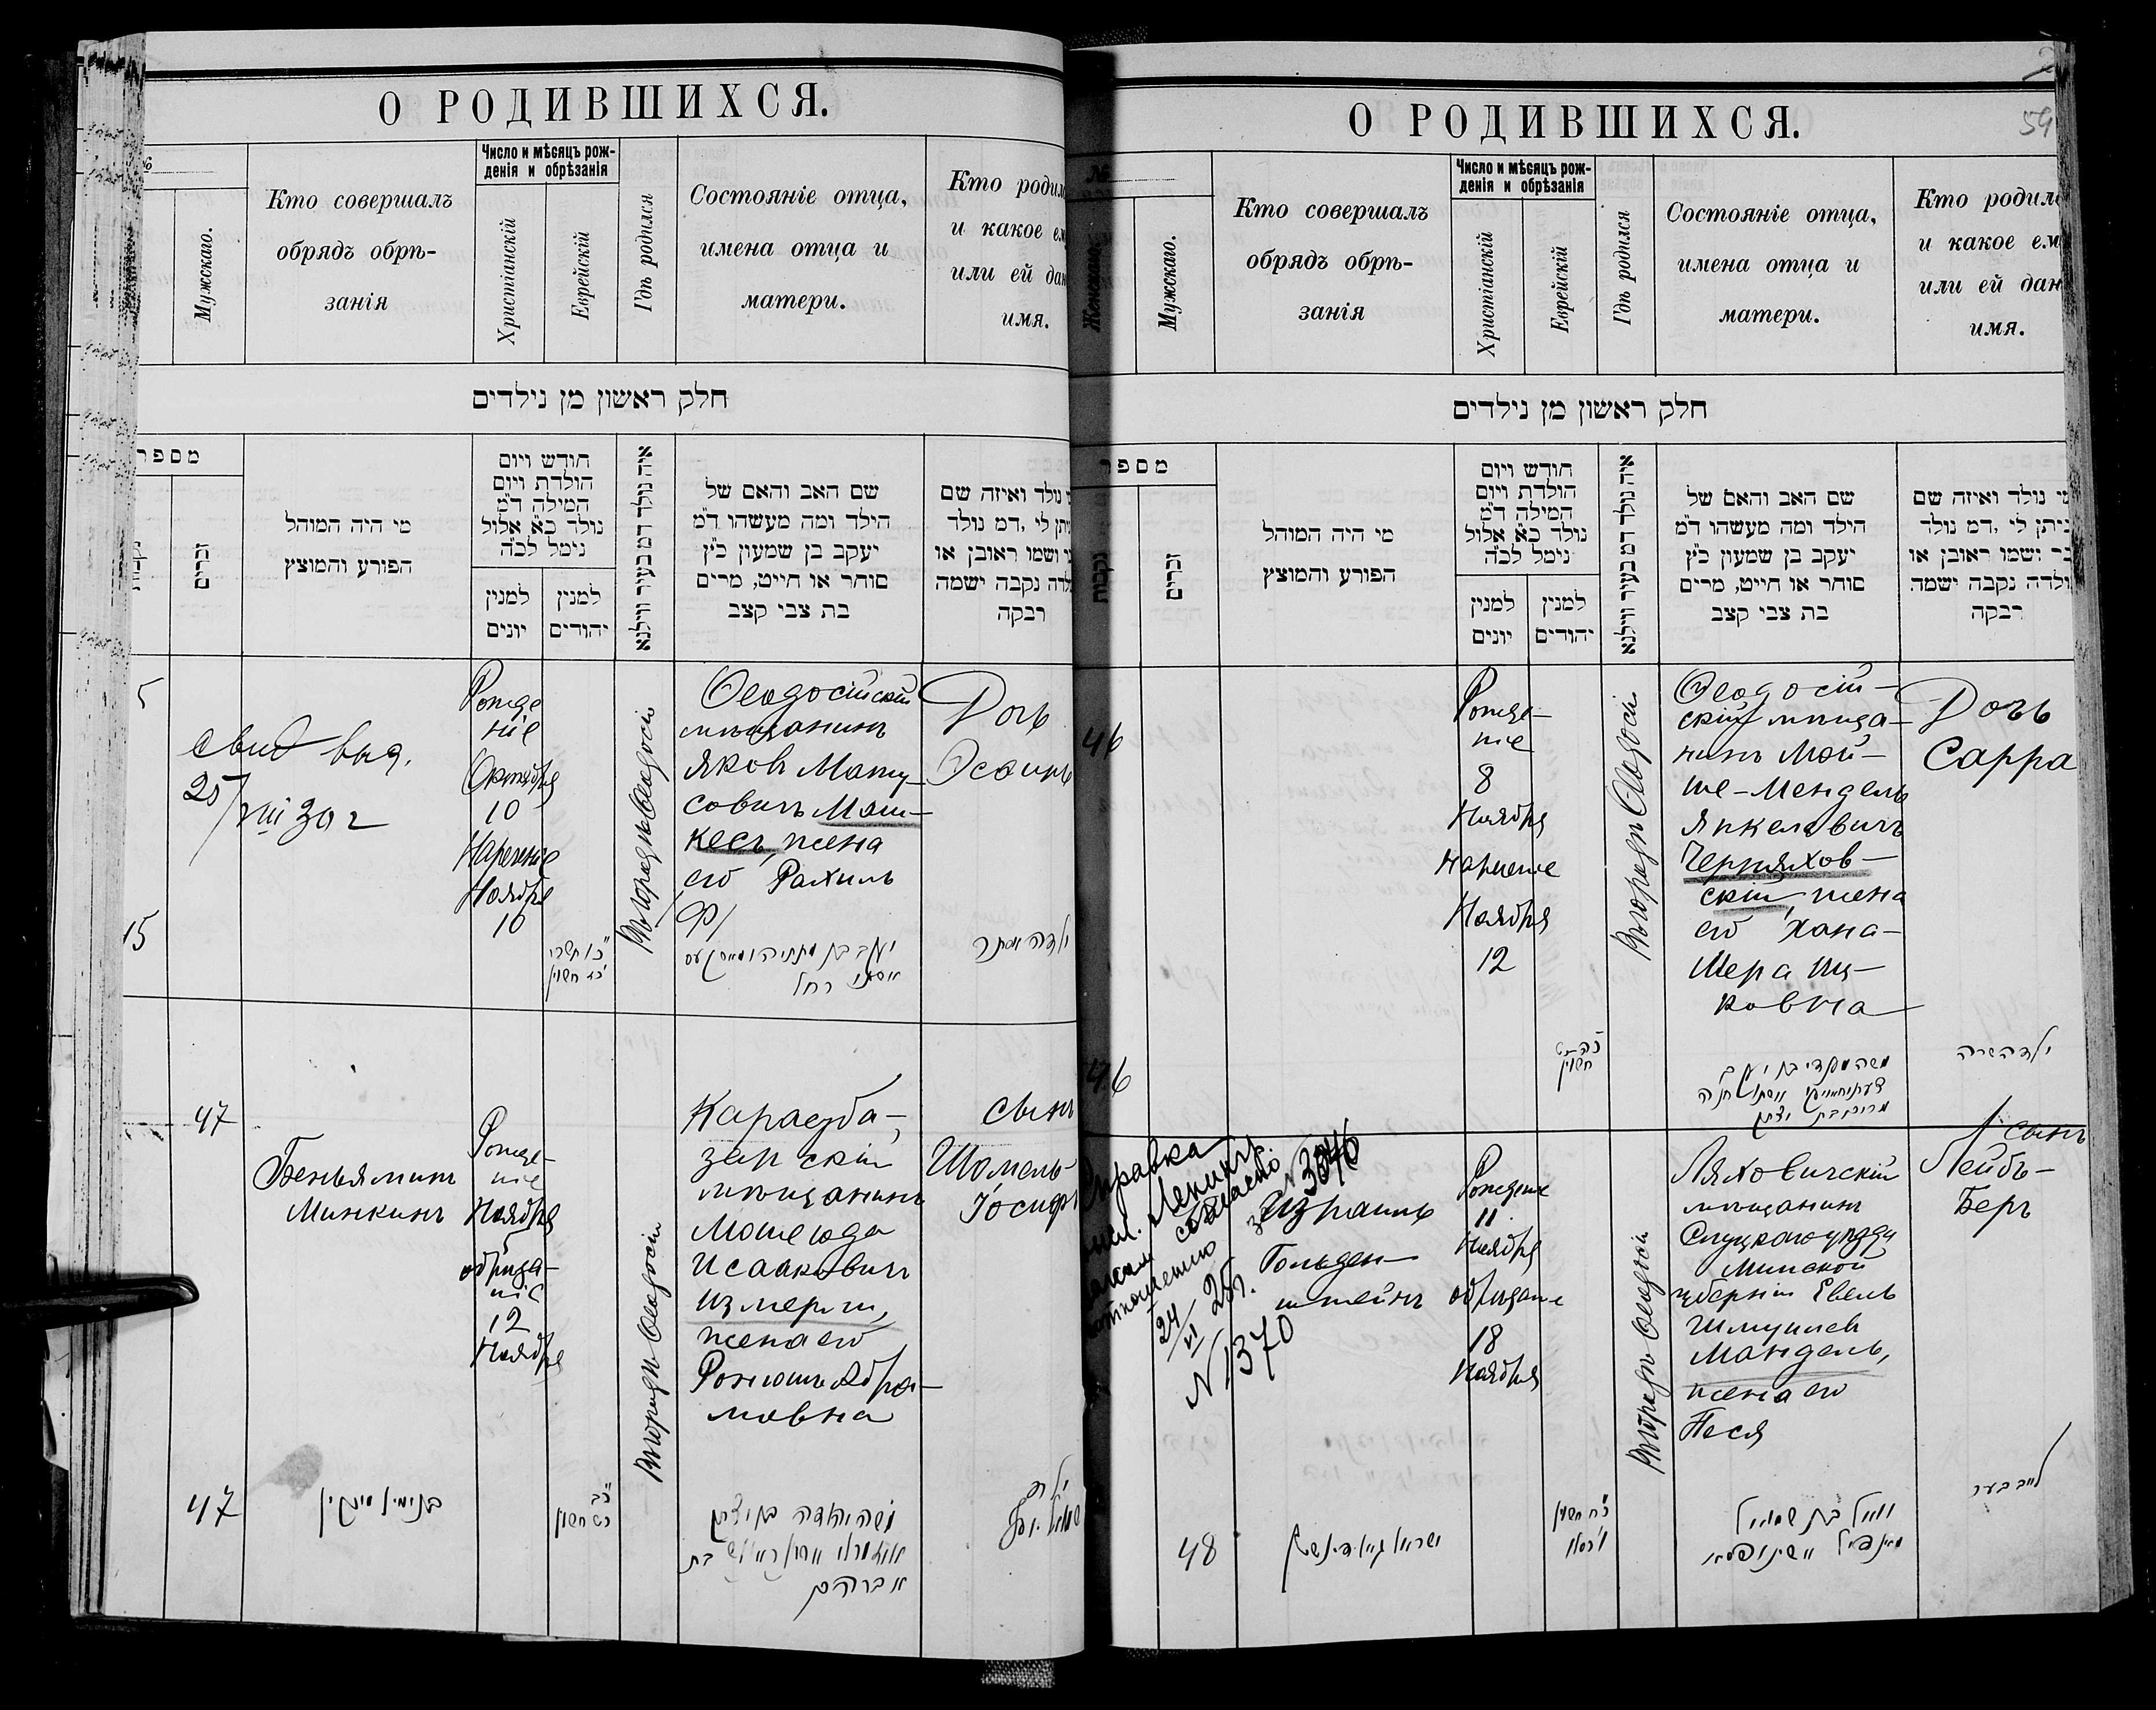 О РОДИВШИХСЯ.
Мужскаго.
Кто совершалъ
обрядъ обрѣ-
занія
Число и мѣсяцъ рож-
денія и обрѣзанія
Христіанскій
Еврейскій
Гдѣ родился
Состояніе отца,
имена отца и
матери.
Кто родил
и какое ем
или ей дан
имя.
חלק ראשון מן נילדים
מספר
זכרים
מי היה המוהל
הפורע והמוצץ
חודש ויום
הולדת ויום
המילה ד״מ
נולד כ״א אלול
נימל לכ״ה
למנין
יונים
למנין
יהודים
איה נולד דמ בעיר ווילנא
שם האב והאם של
הילד ומה מעשהו ד״מ
יעקב בן שמעון כ״ץ
סוחר או חייט, מרים
בת צבי קצב
נולד ואיזה שם
ניתן לי, דמ נולד
ושמו ראובן או
נקבה ישמה
רבקה
5
свид выд.
25/VIII 30 г
Рожде
ніе
Октября
10
Нареченіе
Ноября
10
Въ городѣ Ѳеодосіи
Ѳеодосійскій
мѣщанинъ
Яковъ Мату-
совичъ Маш-
кесъ, жена
его Рахиль
Дочь
Эсѳирь
15
47
Беньяминъ
Минкинъ
Рожде-
ніе
Ноября
5
обрѣза-
ніе
12
Ноября
Въ городѣ Ѳеодосіи
Карасуба-
зарскій
мѣщанинъ
Мошеюда
Исааковичъ
Измерли,
жена его
Абра-
мовна
Сынъ
Шомель
Іосифъ
47
בנימין מינקין
О РОДИВШИХСЯ.
59
№
Женскаго
Мужскаго.
Кто совершалъ
обрядъ обрѣ-
занія
Число и мѣсяцъ рож-
денія и обрѣзанія
Христіанскій
Еврейскій
Гдѣ родился
Состояніе отца,
имена отца и
матери.
Кто родил
и какое ем
или ей дан
имя.
חלק ראשון מן נילדים
מספר
נקבות
זכרים
מי היה המוהל
הפורע והמוצץ
חודש ויום
הולדת ויום
המילה ד״מ
נולד כ״א אלול
נימל לכ״ה
למנין
יונים
למנין
יהודים
איה נולד דמ בעיר ווילנא
שם האב והאם של
הילד ומה מעשהו ד״מ
יעקב בן שמעון כ״ץ
סוחר או חייט, מרים
בת צבי קצב
נולד ואיזה שם
ניתן לי, דמ נולד
ושמו ראובן או
נקבה ישמה
רבקה
46
Рожде-
ніе
8
Ноября
нареченіе
Ноября
12
Въ городѣ Ѳеодосіи
Ѳеодосій-
скій мѣща-
нинъ Мой-
ше-Мендель
Янкелевичъ
Черняхов-
скій, жена
его Хана-
Мера Иц-
ковна
Дочь
Сарра
46
Справка
согласно
24/VI 25г.
N 1370
Израиль
Гольден-
штейнъ
Рожденіе
11
Ноября
обрѣзаніе
18
Ноября
Въ городѣ Ѳеодосіи
Ляховичскій
мѣщанинъ
Слуцкаго уѣзда
Минской
губерніи Евель
Шмуилев
Мандель,
жена его
Песя
Сынъ
Лейбъ-
Беръ
48